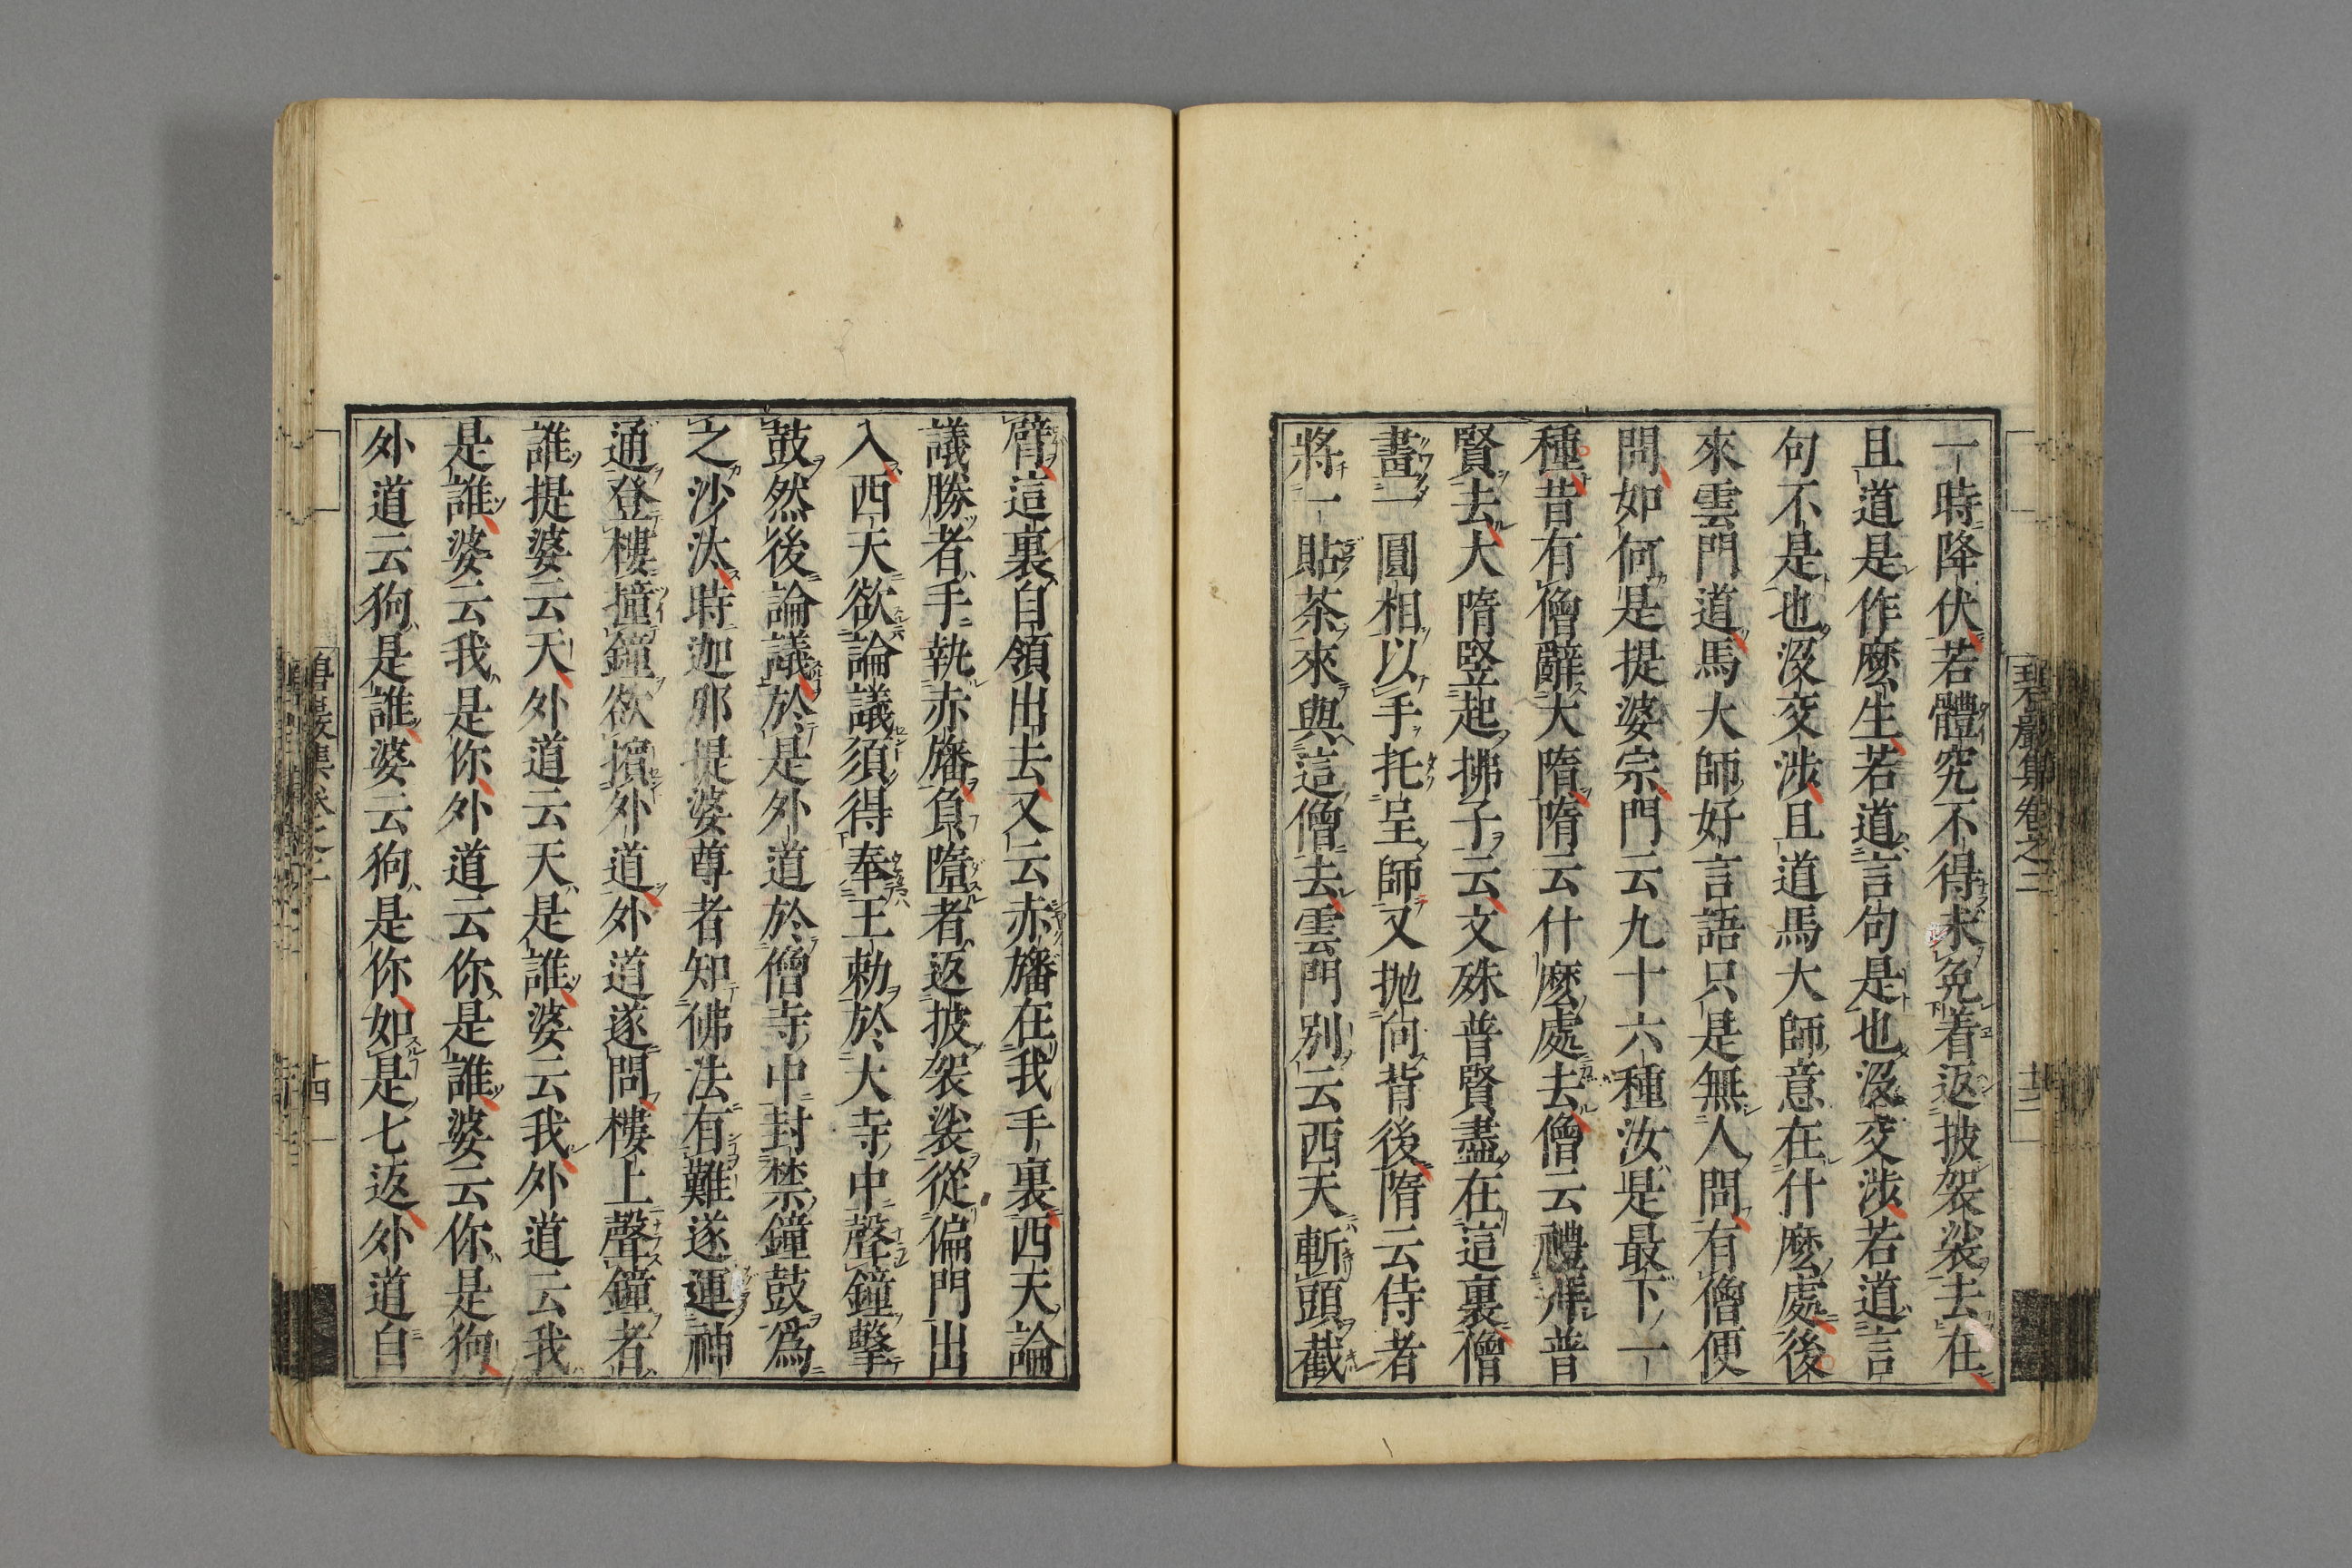 碧巖集卷之二
一時降伏若體究不得未免着返披袈裟去在
且道是作麽生若道言句是也沒交涉若道言
句不是也沒交涉且道馬大師意在什麽處後
來雲門道馬大師好言語只是無人問有僧便
問如何是提婆宗門云九十六種汝是最下一
種昔有僧辭大隋隋云什麽處去僧云禮拜普
賢去大隋竪起拂子云文殊普賢盡在這裏僧
畫一圓相以手托呈師又抛向背後隋云侍者
將一貼茶來與這僧去雲門別云西天斬頭截
臂這裏自領出去又云赤旛在我手裏西天論
議勝者手執赤旛負墮者返披袈裟從偏門出
入西天欲論議須得奉王勅於大寺中聲鐘擊
鼓然後論議於是外道於僧寺中封禁鐘鼓爲
之沙汰時迦那提婆尊者知佛法有難遂運神
通登樓撞鐘欲擯外道外道遂問樓上聲鐘者
誰提婆云天外道云天是誰婆云我外道云我
是誰婆云我是你外道云你是誰婆云你是狗
外道云狗是誰婆云狗是你如是七返外道自